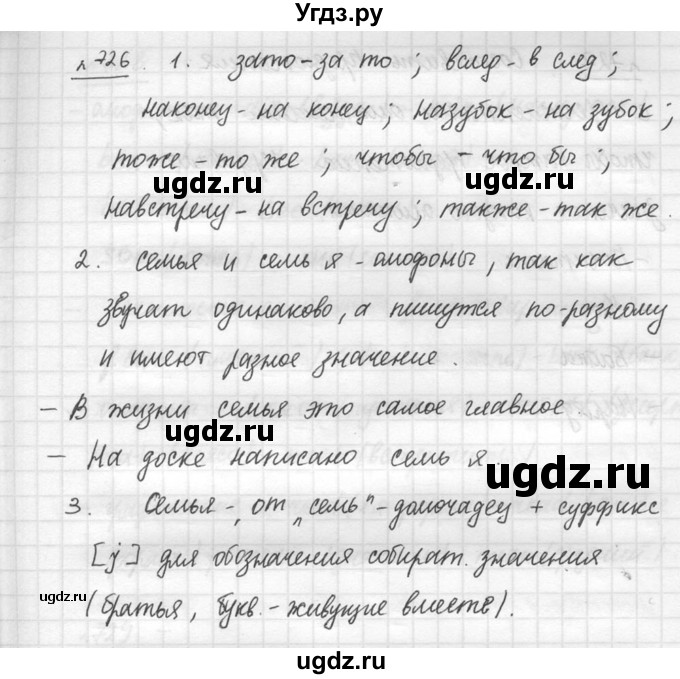 Угдз.ру
№726 1. зато-за то; вслед-в след;
наконец-на конец; назубок-на зубок;
тоже-то же; чтобы-что бы;
ugdz.ru ugdz.ru
навстречу-на встречу; также-так же.
2. семья и семь я - омофоны, так как
звучат одинаково, а пишутся по-разному
и имеют разное значение.
- В жизни семья это самое главное.
ugdz.ru ugdz.ru
- На доске написано семь я
3. Семья-, от „семь"-домочадец + суффикс
[j] для обозначения собират. значения
ugdz.ru
(братья, букв.-живущие вместе).
ugdz.ru
ugdz.ru